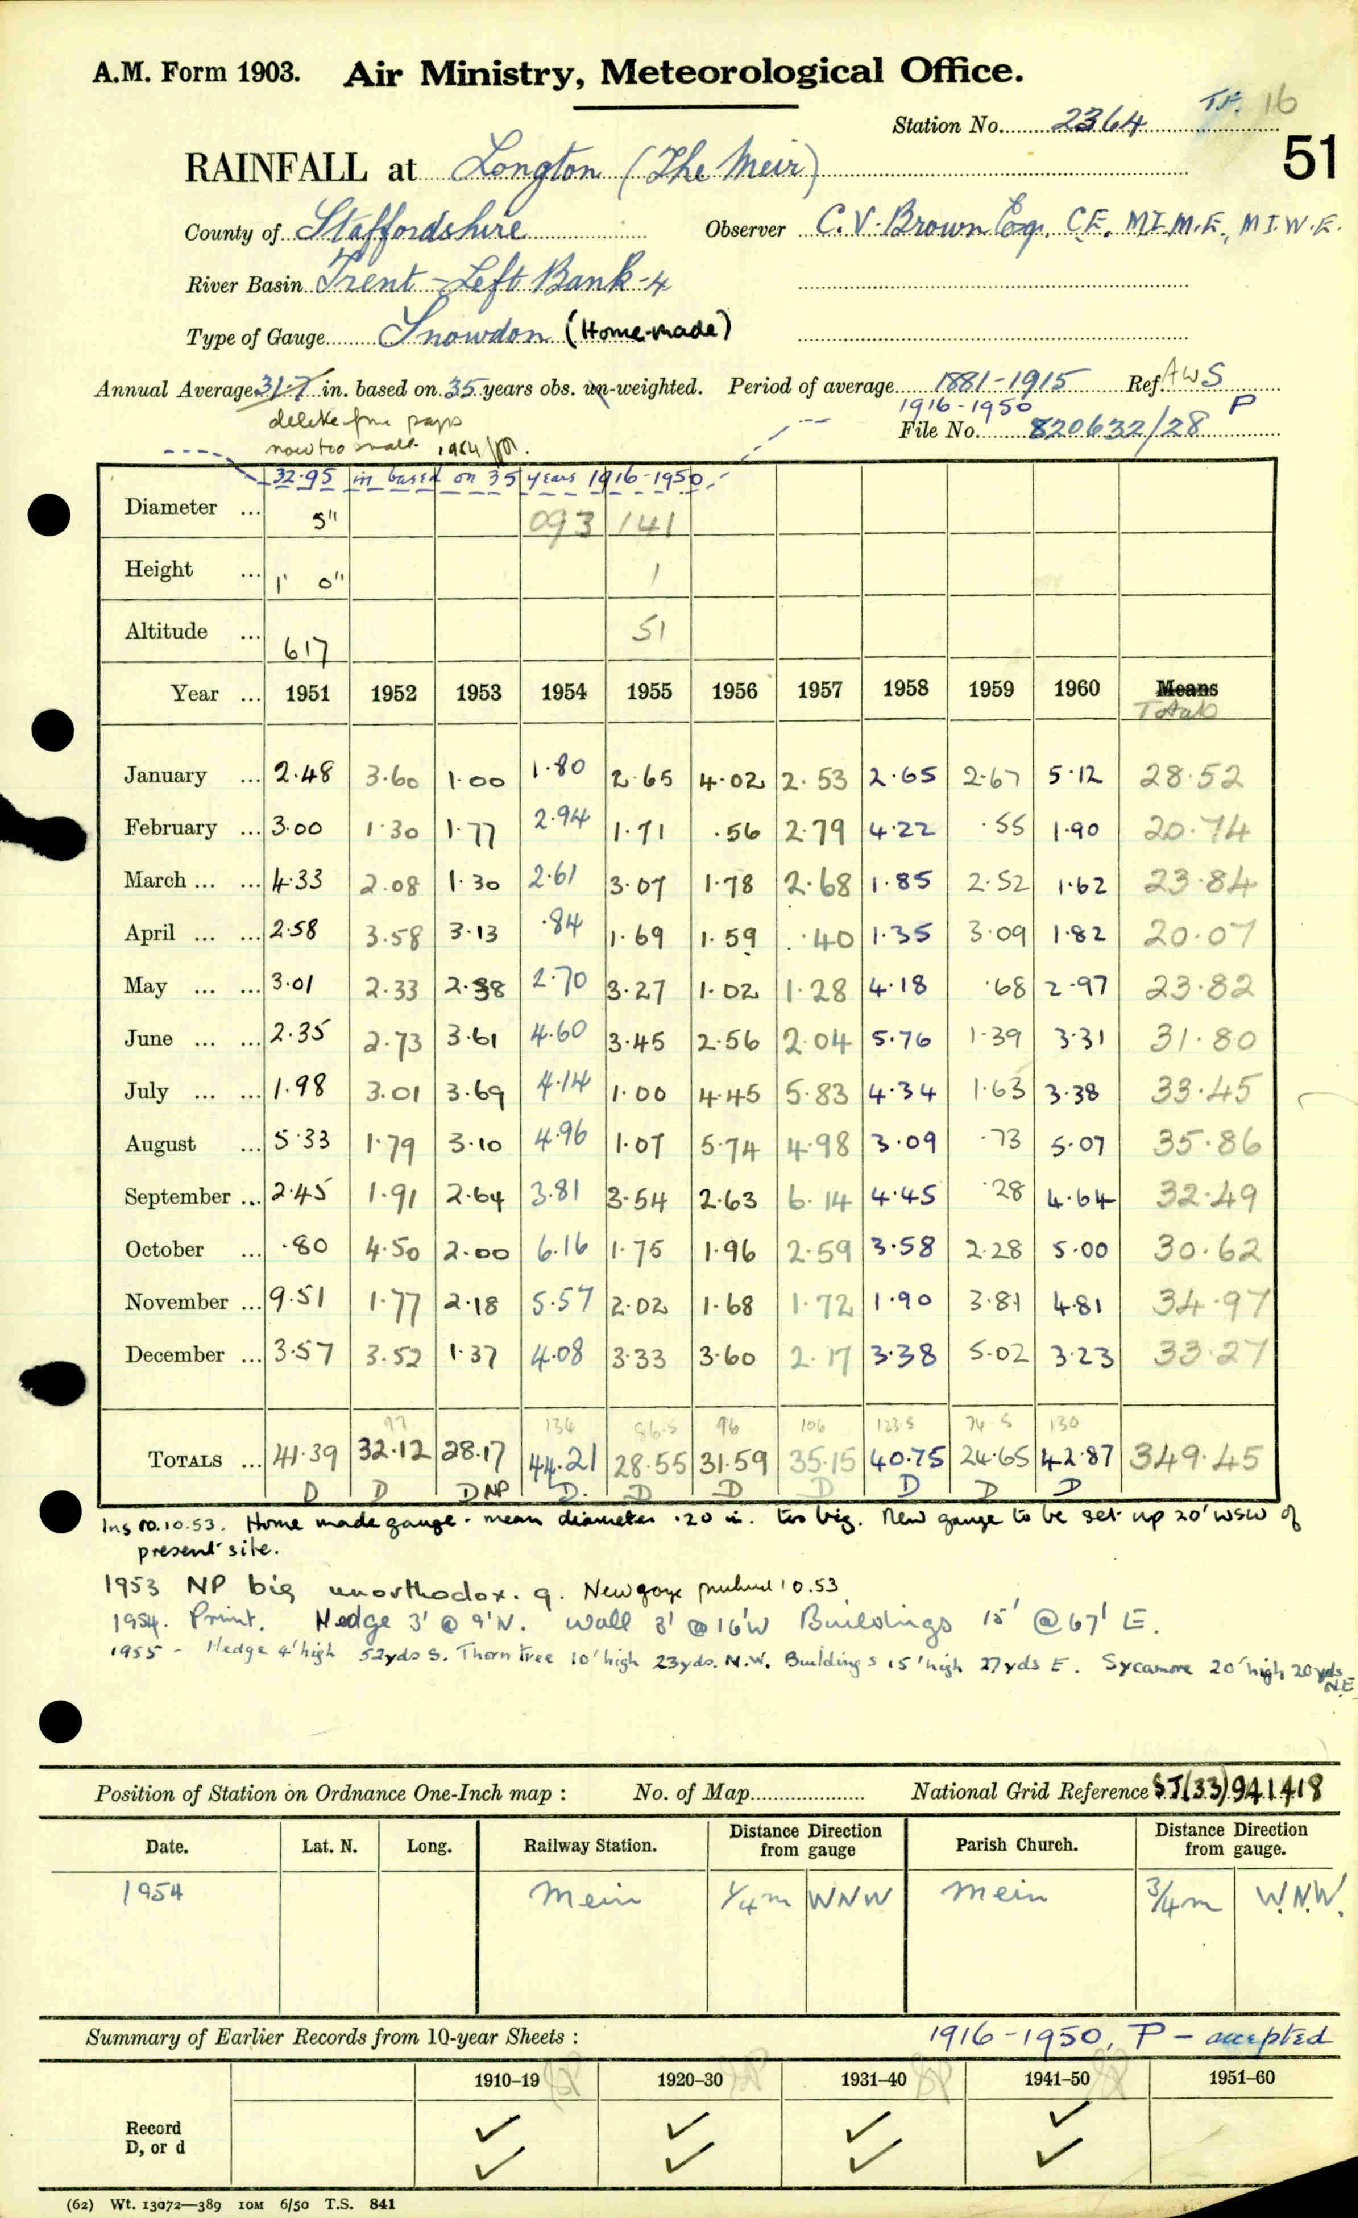 A.M. Form 1903. Air Ministry, Meteorological Office.
16
Station No. 2364
51
RAINFALL at Longton (The Meir)
County of Staffordshire Observer C.V. Brown Esq. C.E, M.I.M.E., M.I.W.E.
River Basin Trent - Left Bank - 4
Type of Gauge Snowdon (Home-made)
Annual Average 31.7 in. based on 35 years obs. un-weighted. Period of average 1881-1915 Ref. AWS
1916-1950 P
File No. 820632/28
now too small 1954
32.95 in based on 35 years 1916-1950
Diameter ... 5" 093 141
Height ... 1' 0" 1
Altitude ... 617 51
Year ... 1951 1952 1953 1954 1955 1956 1957 1958 1959 1960 Means
Totals
January ... 2.48 3.60 1.00 1.80 2.65 4.02 2.53 2.65 2.67 5.12 28.52
February ... 3.00 1.30 1.77 2.94 1.71 .56 2.79 4.22 .55 1.90 20.74
March ... ... 4.33 2.08 1.30 2.61 3.07 1.78 2.68 1.85 2.52 1.62 23.84
April ... ... 2.58 3.58 3.13 .84 1.69 1.59 .40 1.35 3.09 1.82 20.07
May ... ... 3.01 2.33 2.38 2.70 3.27 1.02 1.28 4.18 .68 2.97 23.82
June ... ... 2.35 2.73 3.61 4.60 3.45 2.56 2.04 5.76 1.39 3.31 31.80
July ... ... 1.98 3.01 3.69 4.14 1.00 4.45 5.83 4.34 1.63 3.38 33.45
August ... 5.33 1.79 3.10 4.96 1.07 5.74 4.98 3.09 .73 5.07 35.86
September ... 2.45 1.91 2.64 3.81 3.54 2.63 6.14 4.45 .28 4.64 32.49
October ... .80 4.50 2.00 6.16 1.75 1.96 2.59 3.58 2.28 5.00 30.62
November ... 9.51 1.77 2.18 5.57 2.02 1.68 1.72 1.90 3.81 4.81 34.97
December ... 3.57 3.52 1.37 4.08 3.33 3.60 2.17 3.38 5.02 3.23 33.27
97 134 86.5 96 106 123.5 74.5 130
TOTALS ... 41.39 32.12 28.17 44.21 28.55 31.59 35.15 40.75 24.65 42.87 349.45
D D D NP D. D D D D D D
Ins 10.10.53. Home made gauge - mean diameter .20 in. too big. New gauge to be set up 20' WSW of
present site.
1953 NP big unorthodox. g. New gauge 10.53
1954. Print. Hedge 3' @ 9' N. Wall 3' @ 16' W Buildings 15' @ 67' E.
1955 - Hedge 4' high 52yds S. Thorn tree 10' high 23yds. N.W. Buildings 15' high 27yds E. Sycamore 20' high 20yds
N.E
Position of Station on Ordnance One-Inch map : No. of Map National Grid Reference SJ(33)941418
Date. Lat. N. Long. Railway Station. Distance from gauge Direction Parish Church. Distance from gauge. Direction
1954 Meir 1/4 m WNW Meir 3/4 m W.N.W.
Summary of Earlier Records from 10-year Sheets : 1916-1950, P - accepted
1910-19 1920-30 1931-40 1941-50 1951-60
Record ✓ ✓ ✓ ✓
D, or d ✓ ✓ ✓ ✓
(62) Wt. 13072—389 10M 6/50 T.S. 841